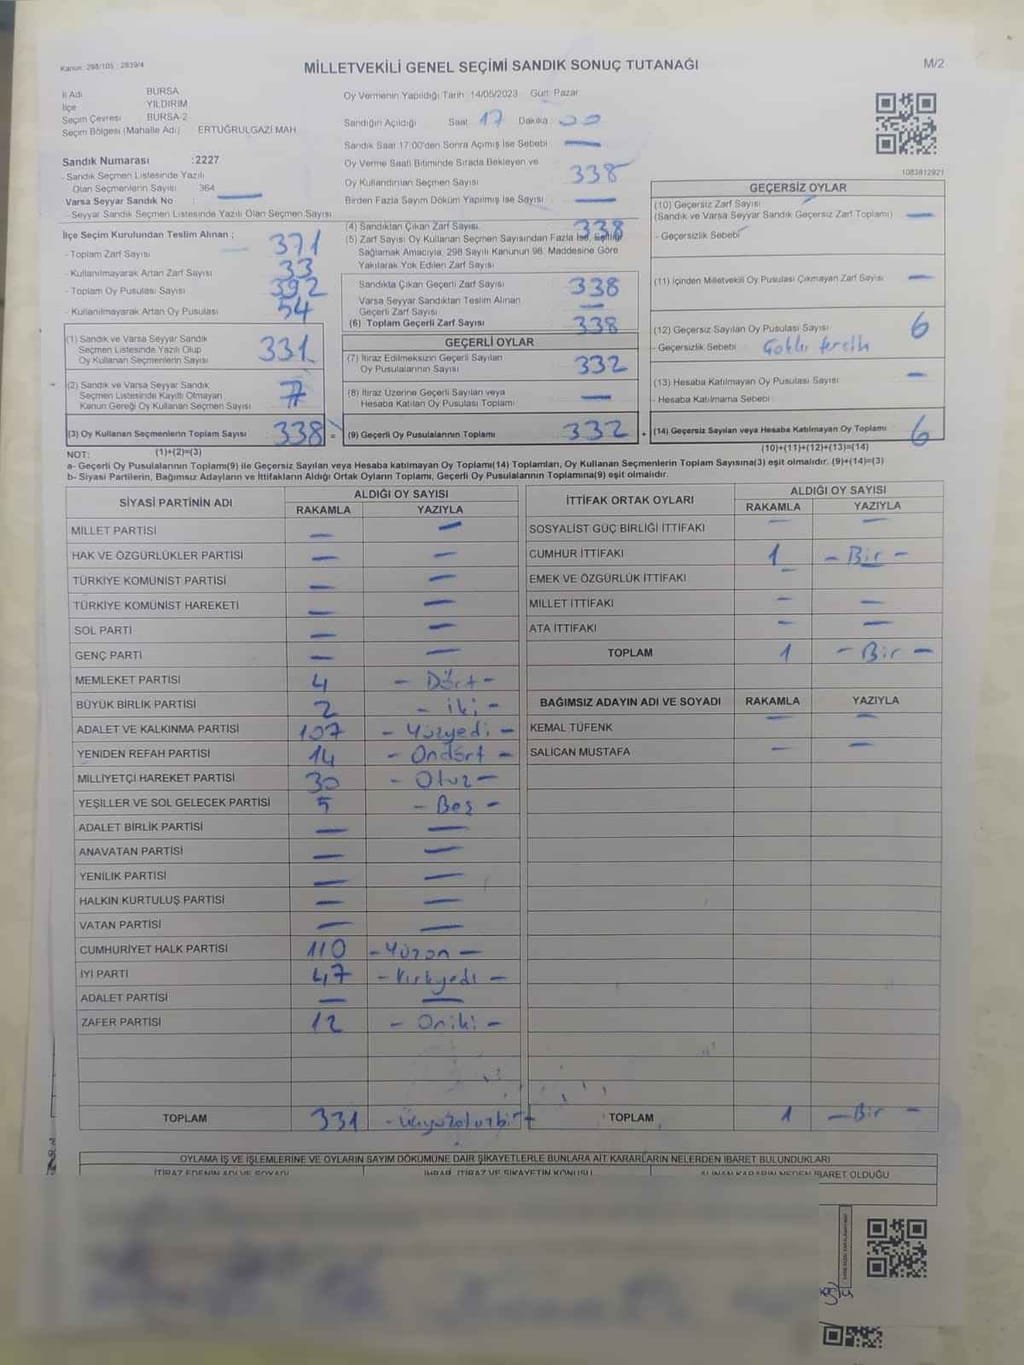 Kanun: 298/105 : 2839/4
MİLLETVEKİLİ GENEL SEÇİMİ SANDIK SONUÇ TUTANAĞI
M/2
İl Adı BURSA
İlçe YILDIRIM
Seçim Çevresi BURSA 2
Seçim Bölgesi (Mahalle Adı) ERTUĞRULGAZİ MAH
Sandık Numarası :2227
- Sandık Seçmen Listesinde Yazılı
Olan Seçmenlerin Sayısı 364
Varsa Seyyar Sandık No
- Seyyar Sandık Seçmen Listesinde Yazılı Olan Seçmen Sayısı
İlçe Seçim Kurulundan Teslim Alınan ;
- Toplam Zarf Sayısı 371
- Kullanılmayarak Artan Zarf Sayısı 33
- Toplam Oy Pusulası Sayısı 392
- Kullanılmayarak Artan Oy Pusulası 54
(1) Sandık ve Varsa Seyyar Sandık
Seçmen Listesinde Yazılı Olup
Oy Kullanan Seçmenlerin Sayısı 331
(2) Sandık ve Varsa Seyyar Sandık
Seçmen Listesinde Kayıtlı Olmayan
Kanun Gereği Oy Kullanan Seçmen Sayısı 7
(3) Oy Kullanan Seçmenlerin Toplam Sayısı 338 =
(1)+(2)=(3)
Oy Vermenin Yapıldığı Tarih 14/05/2023 Gün: Pazar
Sandığın Açıldığı Saat 17 Dakika 00
Sandık Saat 17:00'den Sonra Açılmış İse Sebebi
Oy Verme Saati Bitiminde Sırada Bekleyen ve
Oy Kullandırılan Seçmen Sayısı 338
Birden Fazla Sayım Döküm Yapılmış İse Sayısı
(4) Sandıktan Çıkan Zarf Sayısı 338
(5) Zarf Sayısı Oy Kullanan Seçmen Sayısından Fazla İse, Eşitliği
Sağlamak Amacıyla, 298 Sayılı Kanunun 98. Maddesine Göre
Yakılarak Yok Edilen Zarf Sayısı
Sandıkta Çıkan Geçerli Zarf Sayısı 338
Varsa Seyyar Sandıktan Teslim Alınan
Geçerli Zarf Sayısı
(6) Toplam Geçerli Zarf Sayısı 338
GEÇERLİ OYLAR
(7) İtiraz Edilmeksizin Geçerli Sayılan
Oy Pusulalarının Sayısı 332
(8) İtiraz Üzerine Geçerli Sayılan veya
Hesaba Katılan Oy Pusulası Toplamı
(9) Geçerli Oy Pusulalarının Toplamı 332 +
1083812921
GEÇERSİZ OYLAR
(10) Geçersiz Zarf Sayısı
(Sandık ve Varsa Seyyar Sandık Geçersiz Zarf Toplamı)
- Geçersizlik Sebebi
(11) İçinden Milletvekili Oy Pusulası Çıkmayan Zarf Sayısı
(12) Geçersiz Sayılan Oy Pusulası Sayısı 6
- Geçersizlik Sebebi
(13) Hesaba Katılmayan Oy Pusulası Sayısı
- Hesaba Katılmama Sebebi
(14) Geçersiz Sayılan veya Hesaba Katılmayan Oy Toplamı 6
(10)+(11)+(12)+(13)=(14)
NOT:
a- Geçerli Oy Pusulalarının Toplamı(9) ile Geçersiz Sayılan veya Hesaba katılmayan Oy Toplamı(14) Toplamları, Oy Kullanan Seçmenlerin Toplam Sayısına(3) eşit olmalıdır. (9)+(14)=(3)
b- Siyasi Partilerin, Bağımsız Adayların ve İttifakların Aldığı Ortak Oyların Toplamı, Geçerli Oy Pusulalarının Toplamına(9) eşit olmalıdır.
SİYASİ PARTİNİN ADI ALDIĞI OY SAYISI
RAKAMLA YAZIYLA
MİLLET PARTİSİ
HAK VE ÖZGÜRLÜKLER PARTİSİ
TÜRKİYE KOMÜNİST PARTİSİ
TÜRKİYE KOMÜNİST HAREKETİ
SOL PARTİ
GENÇ PARTİ
MEMLEKET PARTİSİ 4 - Dört -
BÜYÜK BİRLİK PARTİSİ 2 - iki -
ADALET VE KALKINMA PARTİSİ 107 - Yüzyedi -
YENİDEN REFAH PARTİSİ 14 - Ondört -
MİLLİYETÇİ HAREKET PARTİSİ 30 - Otuz -
YEŞİLLER VE SOL GELECEK PARTİSİ 5 - Beş -
ADALET BİRLİK PARTİSİ
ANAVATAN PARTİSİ
YENİLİK PARTİSİ
HALKIN KURTULUŞ PARTİSİ
VATAN PARTİSİ
CUMHURİYET HALK PARTİSİ 110 - Yüzon -
İYİ PARTİ 47 - Kırkyedi -
ADALET PARTİSİ
ZAFER PARTİSİ 12 - Oniki -
TOPLAM 331 - Üçyüzotuzbir
İTTİFAK ORTAK OYLARI ALDIĞI OY SAYISI
RAKAMLA YAZIYLA
SOSYALİST GÜÇ BİRLİĞİ İTTİFAKI
CUMHUR İTTİFAKI 1 - Bir -
EMEK VE ÖZGÜRLÜK İTTİFAKI
MİLLET İTTİFAKI
ATA İTTİFAKI
TOPLAM 1 - Bir -
BAĞIMSIZ ADAYIN ADI VE SOYADI RAKAMLA YAZIYLA
KEMAL TÜFENK
SALİCAN MUSTAFA
TOPLAM 1 - Bir -
OYLAMA İŞ VE İŞLEMLERİNE VE OYLARIN SAYIM DÖKÜMÜNE DAİR ŞİKAYETLERLE BUNLARA AİT KARARLARIN NELERDEN İBARET BULUNDUKLARI
İTİRAZ EDENİN ADI VE SOYADI İHBAR, İTİRAZ VE ŞİKAYETİN KONUSU İBARET OLDUĞU